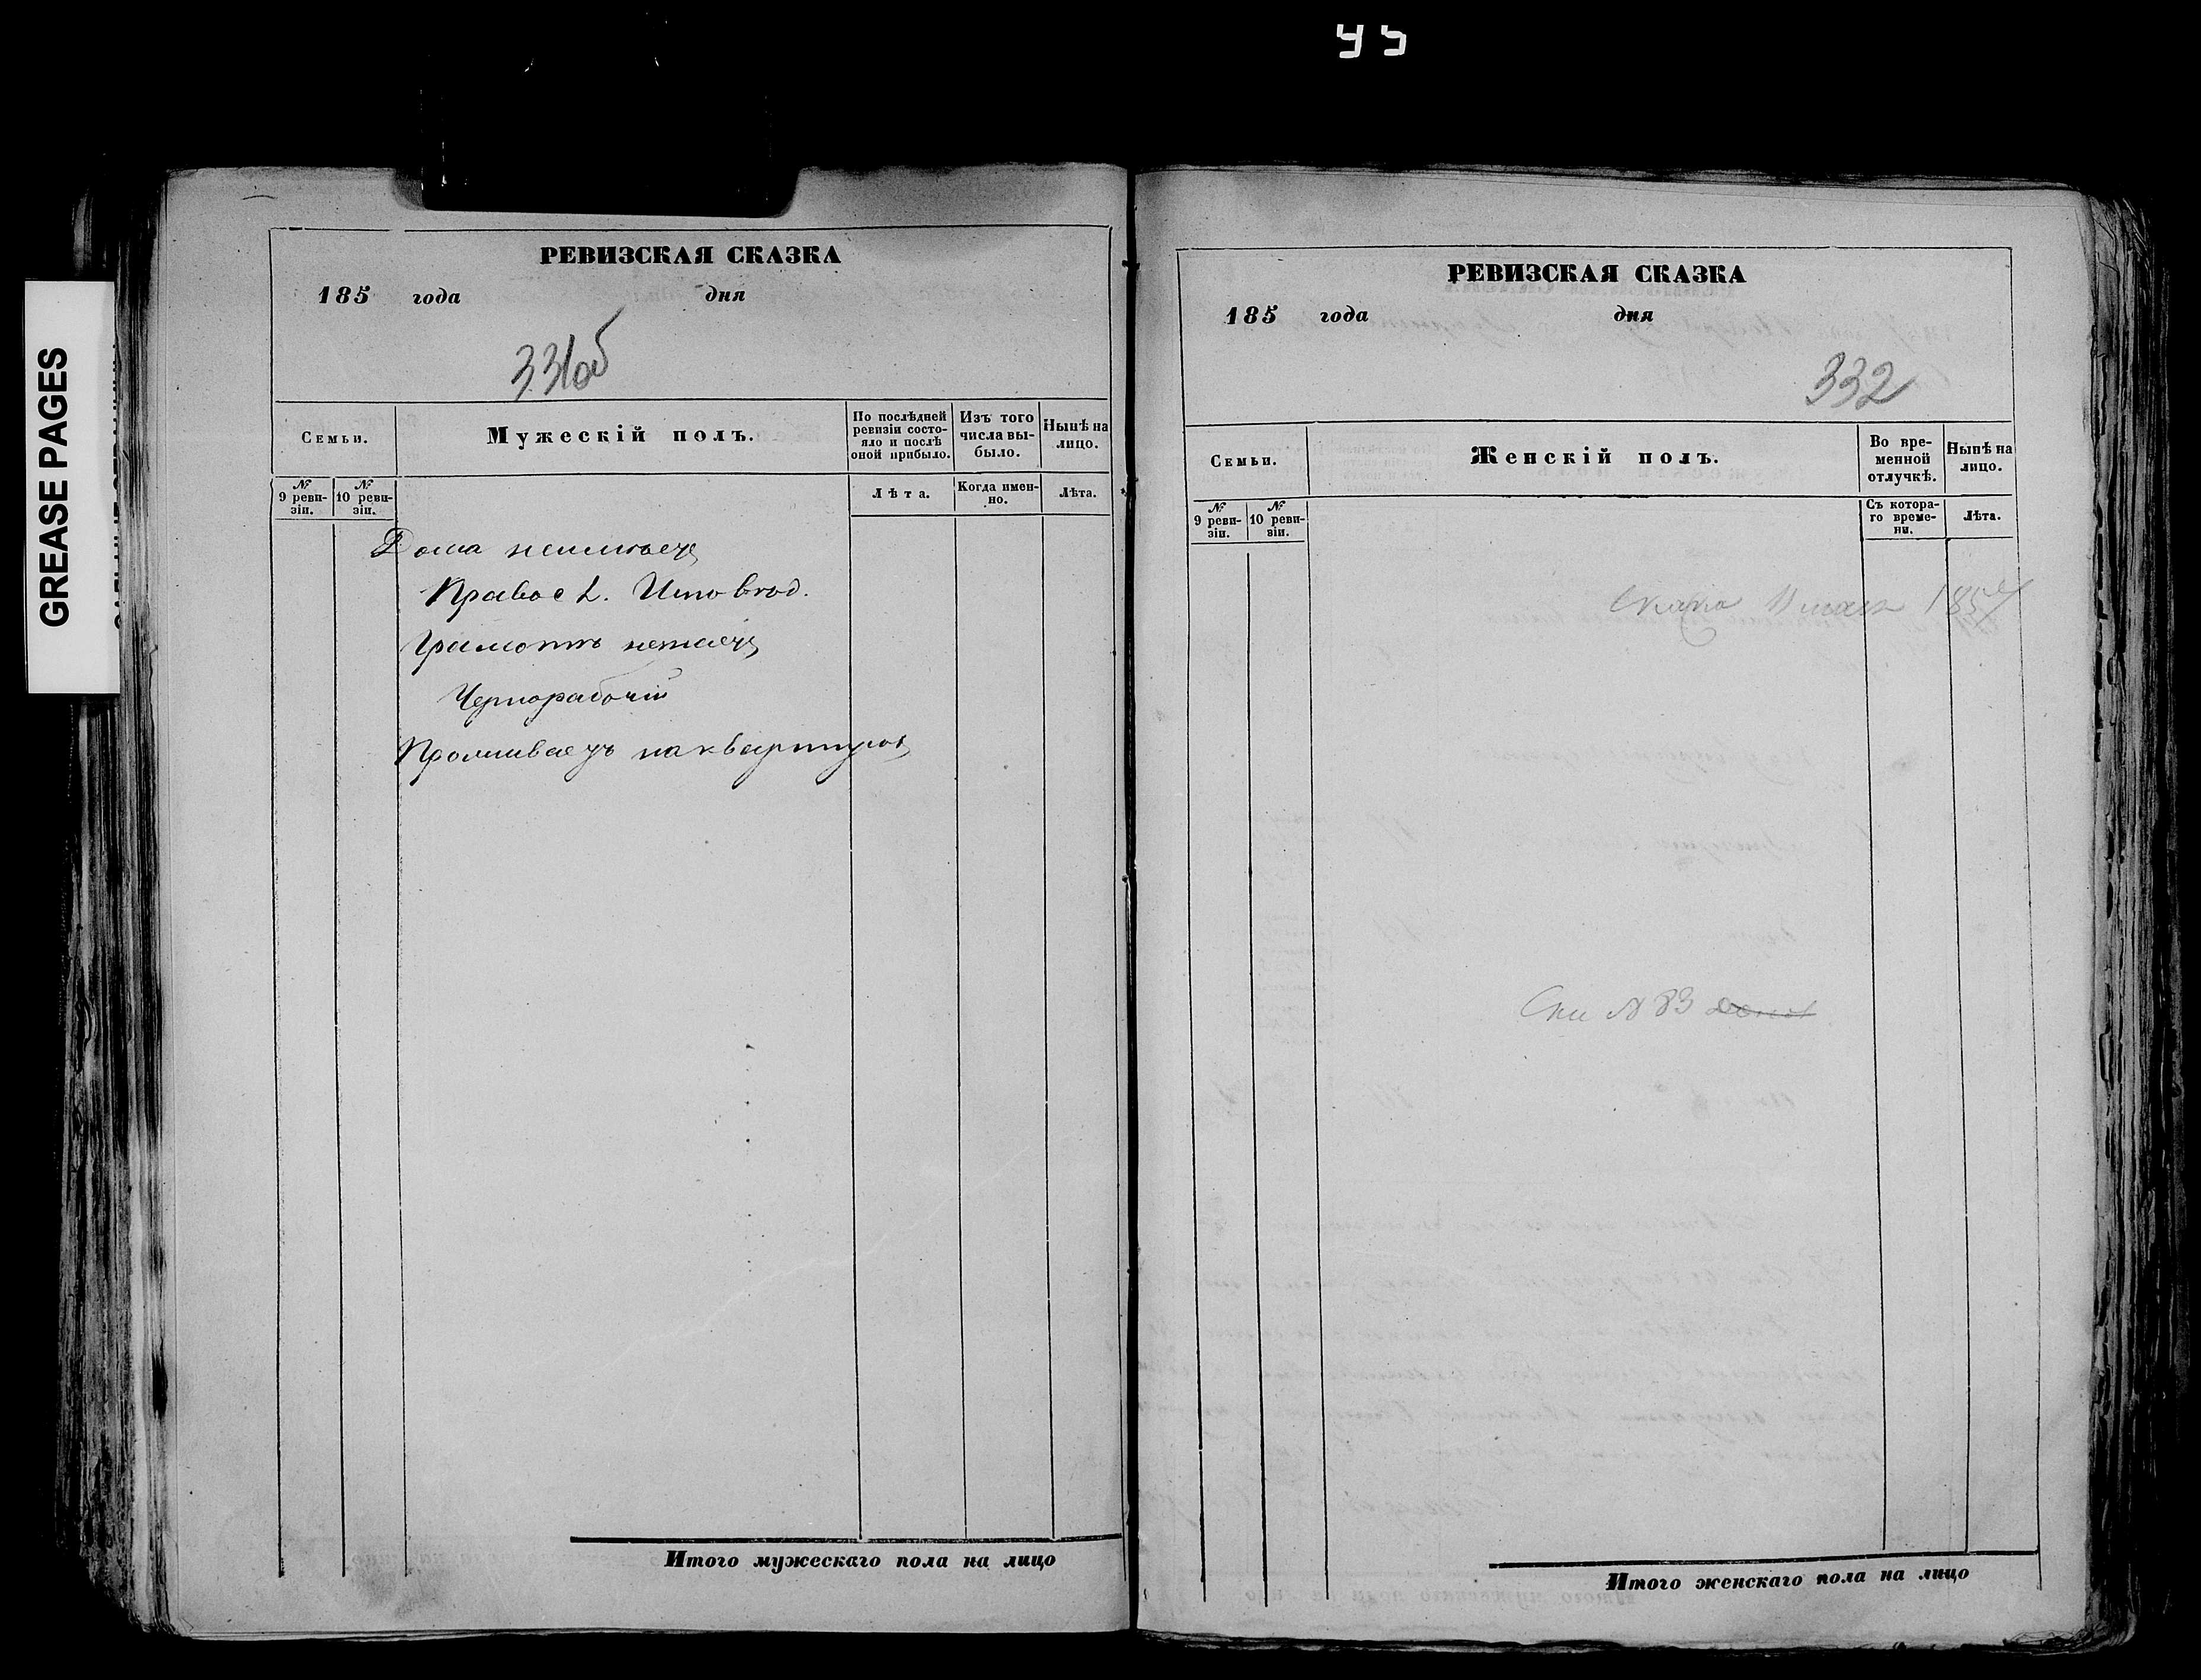 У 5
GREASE PAGES
РЕВИЗСКАЯ СКАЗКА
185 года дня
331об
Семьи.
Мужескій полъ.
По послѣдней ревизіи состояло и послѣ оной прибыло.
Изъ того числа выбыло.
Нынѣ на лицо.
№ 9 ревизіи.
№ 10 ревизіи.
Лѣта.
Когда именно.
Лѣта.
Дома неимѣетъ
Правосл. Исповѣд.
Грамотѣ незнаетъ
Чернорабочій
Проживаетъ на квартирѣ
Итого мужескаго пола на лицо
РЕВИЗСКАЯ СКАЗКА
185 года дня
332
Семьи.
Женскій полъ.
Во временной отлучкѣ.
Нынѣ на лицо.
№ 9 ревизіи.
№ 10 ревизіи.
Съ котораго времени.
Лѣта.
1857
№ 83
Итого женскаго пола на лицо